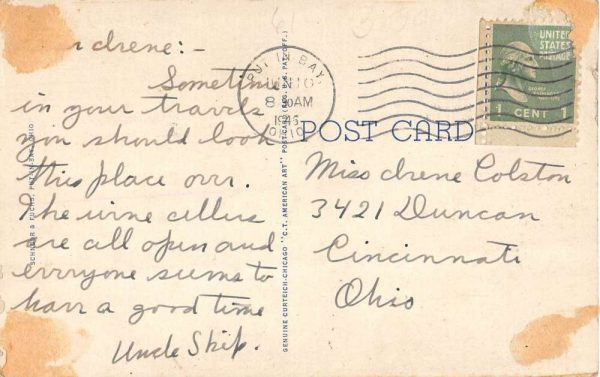 r Irene:-
Sometime
in your travels
you should look
this place over.
The wine cellers
are all open and
everyone seems to
have a good time
Uncle Skip.
PUT IN BAY.
8 AM
1946
OHIO
UNITED
STATES
POSTAGE
1 CENT 1
POST CARD
Miss Irene Colston
3421 Duncan
Cincinnati
Ohio
GENUINE CURTEICH-CHICAGO "C.T. AMERICAN ART" POSTCARD (REG. U.S. PAT. OFF.)
& FUCHS, PUT-IN-BAY, OHIO